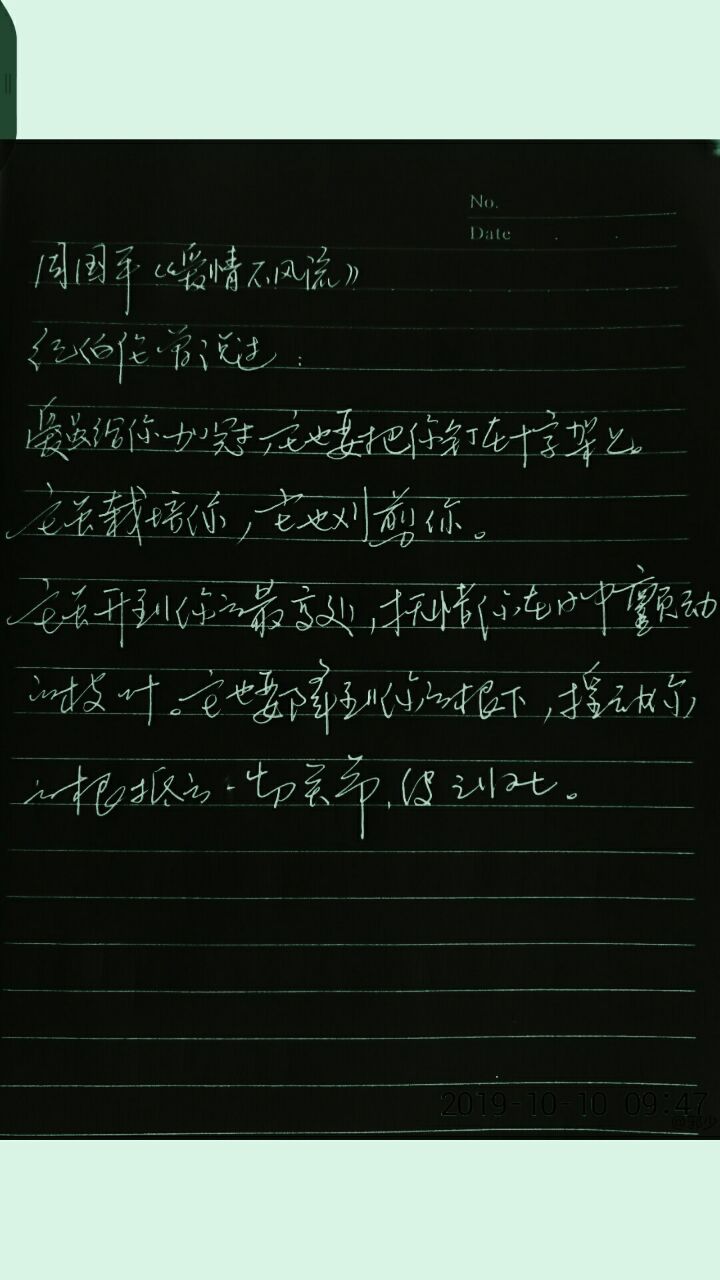 No.
Date
周国平《爱情不风流》
纪伯伦曾说过：
爱虽给你加冠，它也要把你钉在十字架上。
它虽栽培你，它也刈剪你。
它虽升到你的最高处，抚惜你在日中颤动
的枝叶。它也要降到你的根下，摇动你
的根柢的一切关节，使之归土。
2019-10-10 09:47